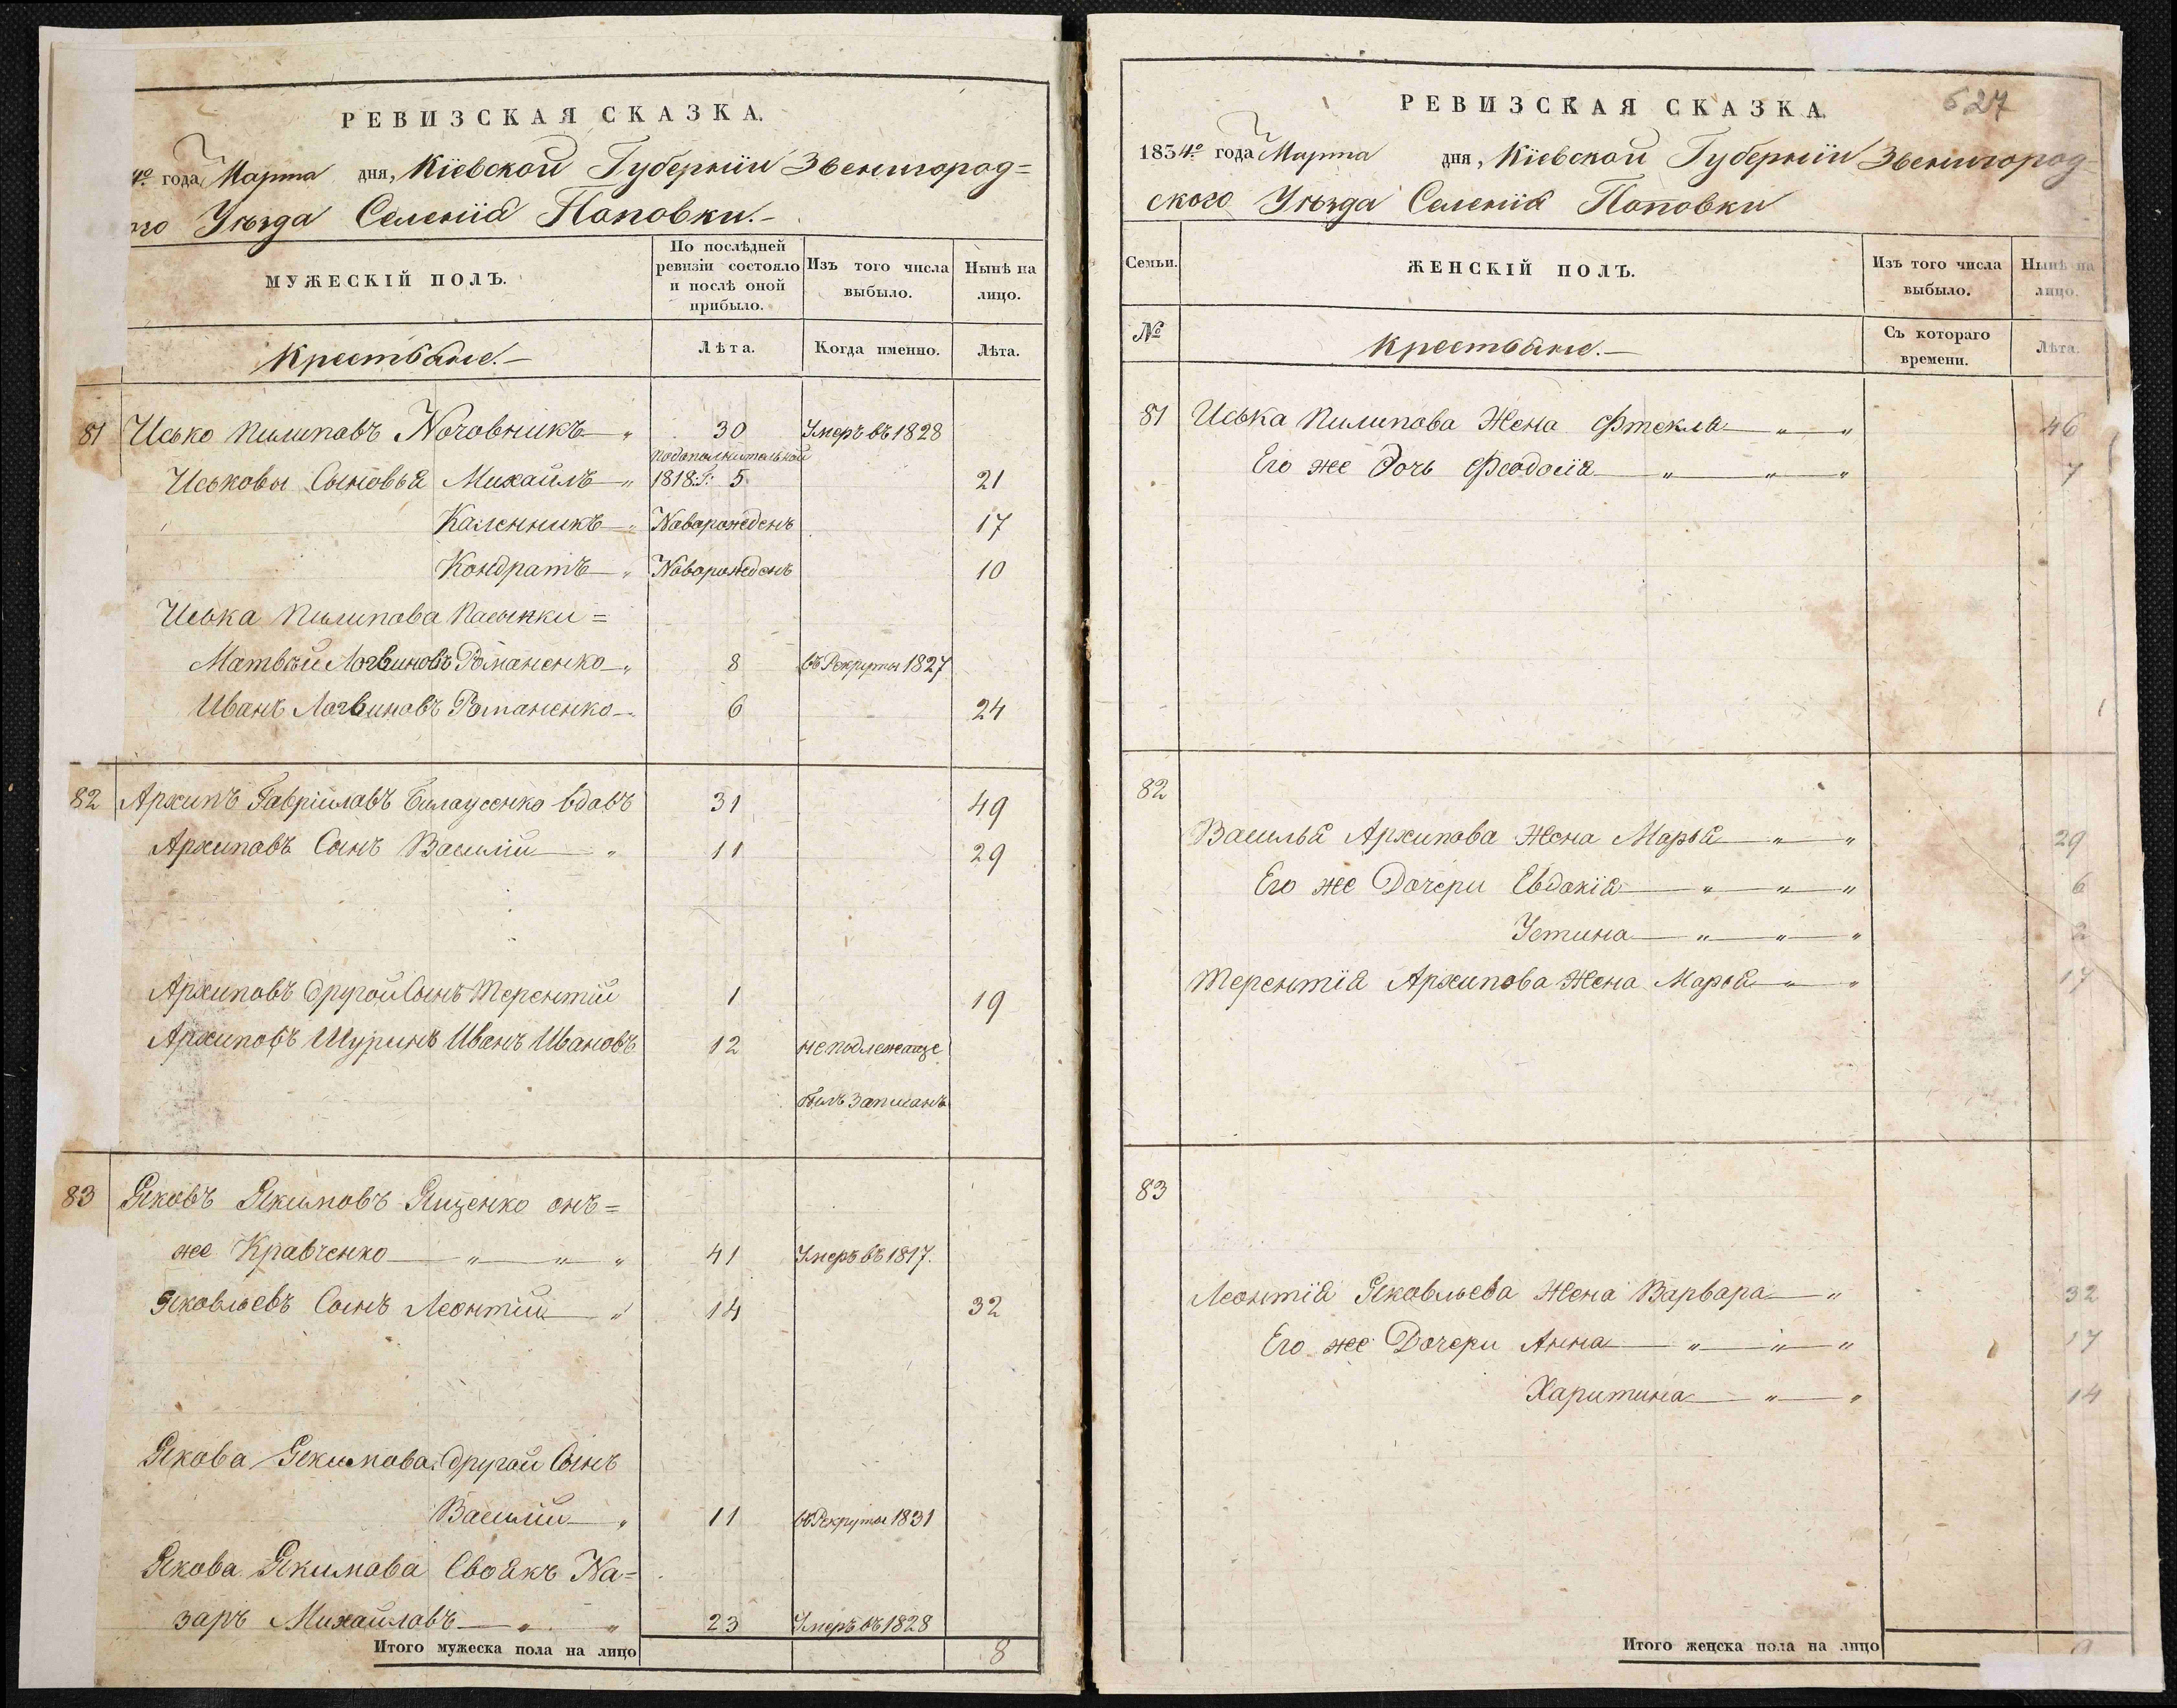 РЕВИЗСКАЯ СКАЗКА.
4го года Марта дня, Кіевской Губерніи Звенигород=
го Уѣзда Селенія Поповки.
МУЖЕСКІЙ ПОЛЪ.
По послѣдней ревизіи состояло и послѣ оной прибыло.
Изъ того числа выбыло.
Нынѣ на лицо.
Крестьяне.
Лѣта.
Когда именно.
Лѣта.
81 Исько Пилиповъ Ночовникъ " 30 Умеръ въ 1828
подополнительной
Иськовы Сыновья Михайлъ " 1818:г: 5 21
Каленникъ " Новорожденъ 17
Кондратъ " Новорожденъ 10
Иська Пилипова Пасынки =
Матвѣй Логвиновъ Романенко " 8 въ Рекруты 1827
Иванъ Логвиновъ Романенко " 6 24
82 Архипъ Гавріиловъ Билаусенко вдовъ 31 49
Архиповъ Сынъ Василій " 11 29
Архиповъ другой Сынъ Терентій 1 19
Архиповъ Шуринъ Иванъ Ивановъ 12 неподлежаще
былъ записанъ
83 Яковъ Якимовъ Ященко онъ =
же Кравченко " " " 41 Умеръ въ 1817.
Яковлевъ Сынъ Леонтій " 14 32
Якова Якимова другой Сынъ
Василій " 11 въ Рекруты 1831
Якова Якимова Своякъ На=
заръ Михайловъ " " 23 Умеръ въ 1828
Итого мужеска пола на лицо 8
627
РЕВИЗСКАЯ СКАЗКА.
1834го года Марта дня, Кіевской Губерніи Звенигород=
ского Уѣзда Селенія Поповки
Семьи.
ЖЕНСКІЙ ПОЛЪ.
Изъ того числа выбыло.
Нынѣ на лицо.
№
Крестьяне.
Съ котораго времени.
Лѣта.
81 Иська Пилипова Жена Фтекла " " 46
Его же Дочь Феодосія " " " 7
82
Василья Архипова Жена Марья " " 29
Его же Дочери Евдокія " " " 6
Устина " " " 2
Терентія Архипова Жена Марья " " 17
83
Леонтія Яковлева Жена Варвара " 32
Его же Дочери Анна " " " 17
Харитина " " 14
Итого женска пола на лицо